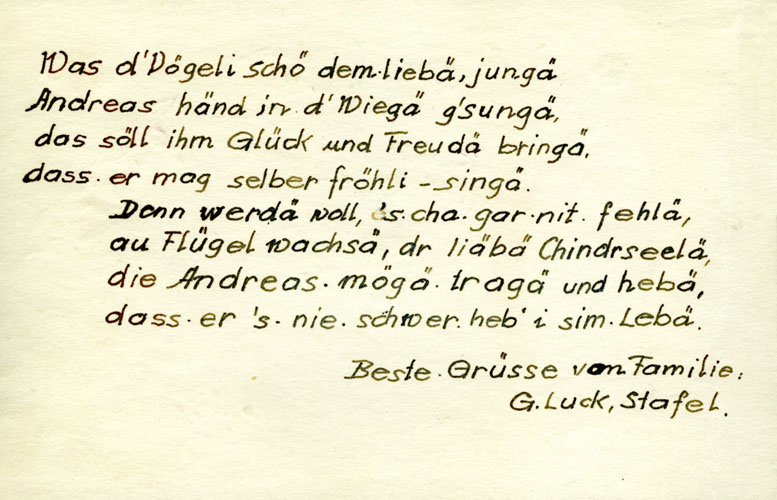 Was d'Vögeli schö dem liebä, jungä
Andreas händ in d'Wiegä g'sungä,
das söll ihm Glück und Freudä bringä,
dass er mag selber fröhli - singä.
Denn werdä woll, 's cha gar nit fehlä,
au Flügel wachsä, dr liäbä Chindrseelä,
die Andreas mögä tragä und hebä,
dass er 's nie schwer heb' i sim Lebä.
Beste Grüsse von Familie:
G. Luck, Stafel.